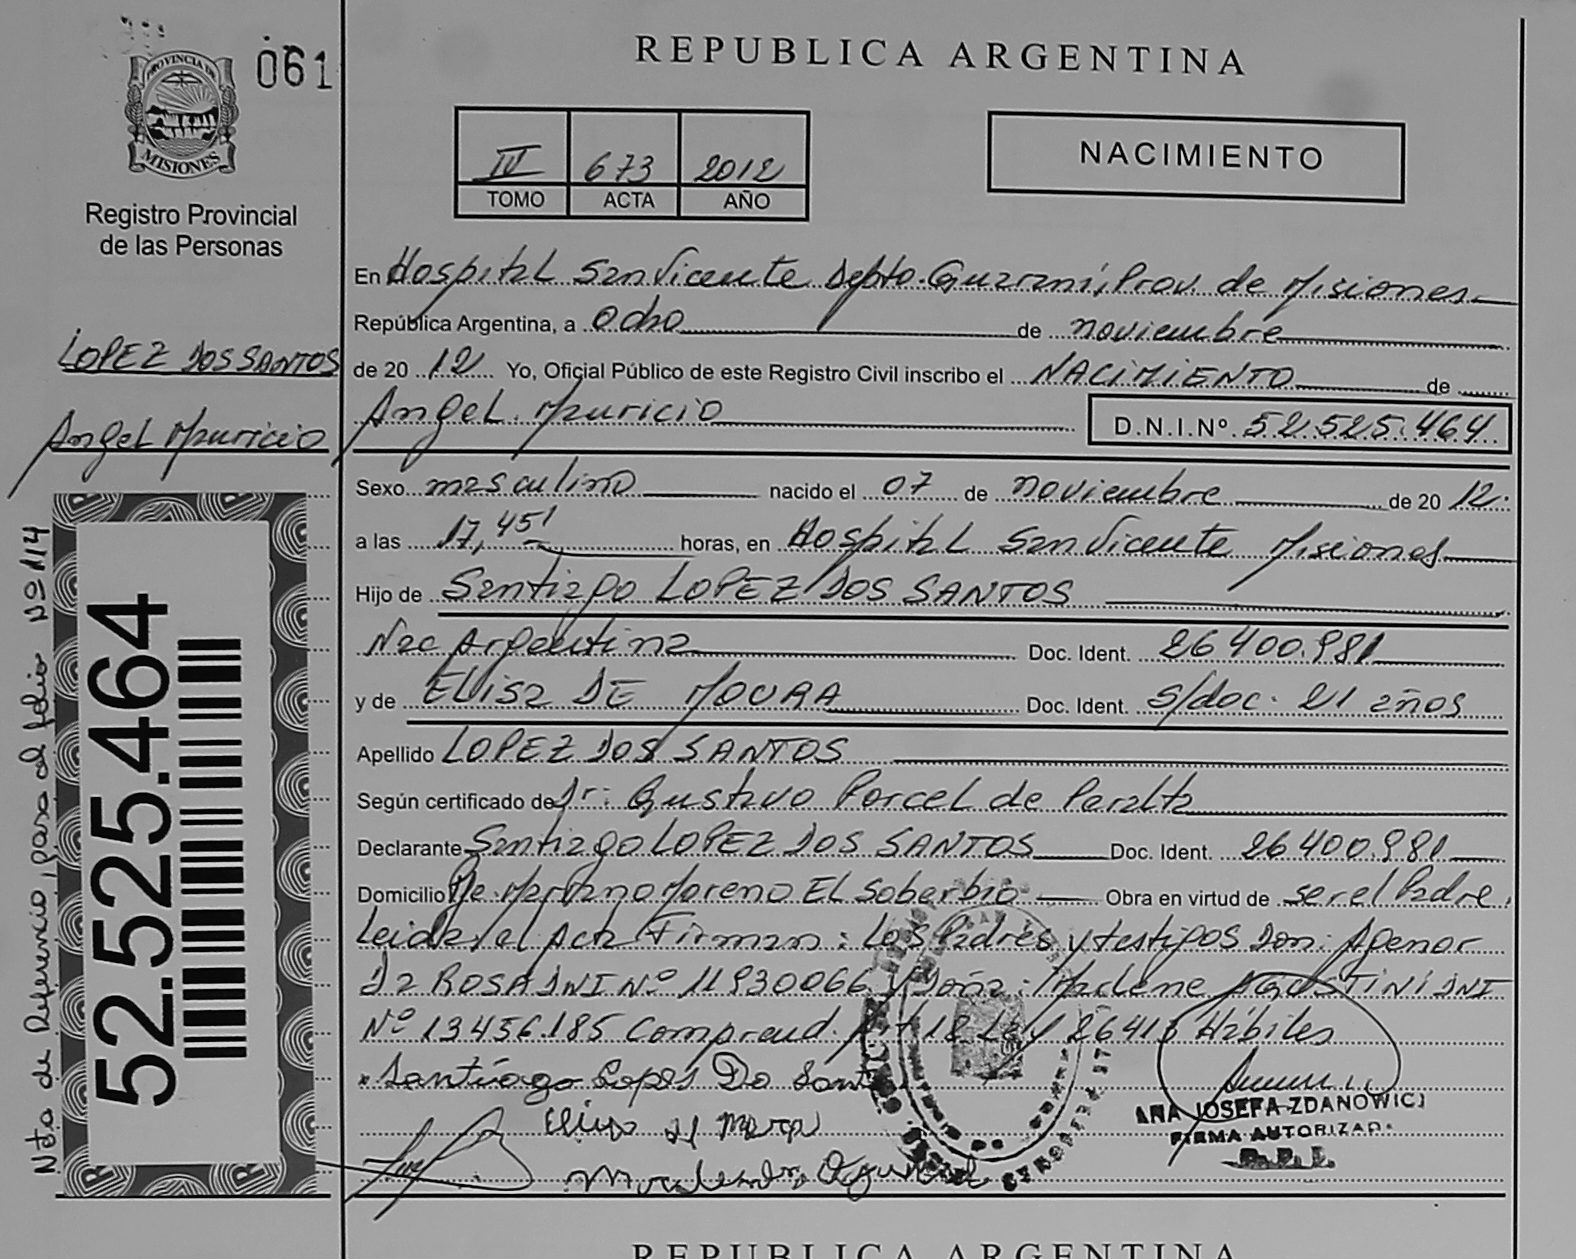 061
PROVINCIA DE
MISIONES
Registro Provincial
de las Personas
LOPEZ DOS SANTOS
Angel Mauricio
Nota de Referencia, pasa al folio Nº 114
52.525.464
REPUBLICA ARGENTINA
IV 673 2012
TOMO ACTA AÑO
NACIMIENTO
En Hospital San Vicente Depto. Guaraní, Prov. de Misiones
República Argentina, a ocho de noviembre
de 2012 Yo, Oficial Público de este Registro Civil inscribo el NACIMIENTO de
Angel Mauricio D.N.I.Nº 52.525.464
Sexo masculino nacido el 07 de noviembre de 2012.
a las 17,45 horas, en Hospital San Vicente Misiones
Hijo de Santiago LOPEZ DOS SANTOS
Nac Argentina Doc. Ident. 26400.981
y de Elisa DE MOURA Doc. Ident. s/doc. 21 años
Apellido LOPEZ DOS SANTOS
Según certificado de Dr: Gustavo Porcel de Peralta
Declarante Santiago LOPEZ DOS SANTOS Doc. Ident. 26400.981
Domicilio Mariano Moreno El Soberbio Obra en virtud de ser el Padre.
Leida el Acta Firman: Los Padres y testigos Don: Agenor
Da ROSA DNI Nº 11930066 y Doña: Marlene AGUSTINI DNI
Nº 13456.185 Comprend. Art 18 Ley 26413 Hábiles
Santiago Lopes Do Sant
ANA JOSEFA ZDANOWICZ
FIRMA AUTORIZADA
REPUBLICA ARGENTINA